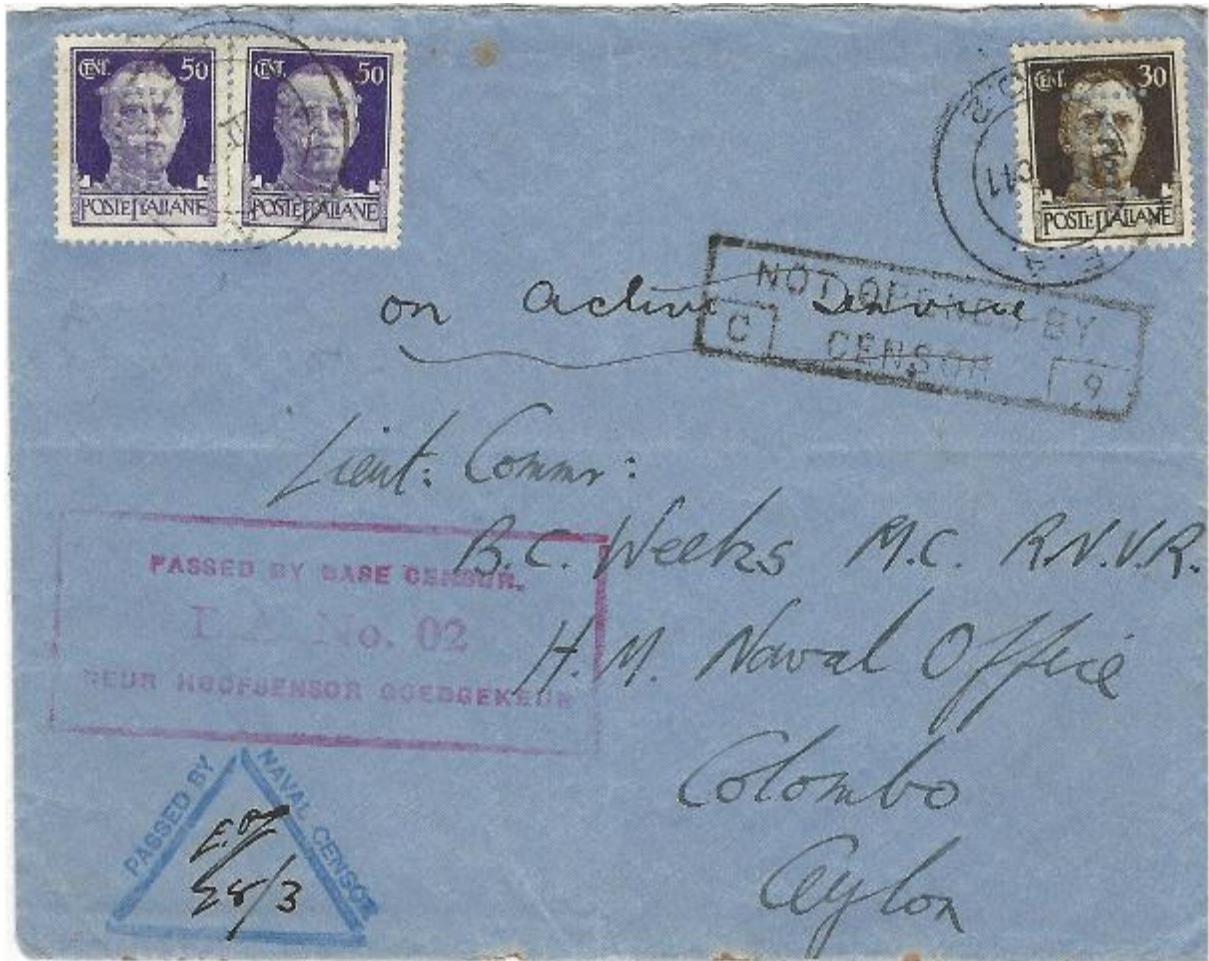 CENT. 50
CENT. 50
CENT. 30
POSTE ITALIANE
POSTE ITALIANE
POSTE ITALIANE
C11
on active Service
NOT OPENED BY
C CENSOR 9
Lieut: Commr:
B.C. Weeks M.C. R.N.V.R.
H.M. Naval Office
Colombo
Ceylon
PASSED BY BASE CENSOR.
No. 02
DEUR HOOFSENSOR GOEDGEKEUR
PASSED BY NAVAL CENSOR
28/3